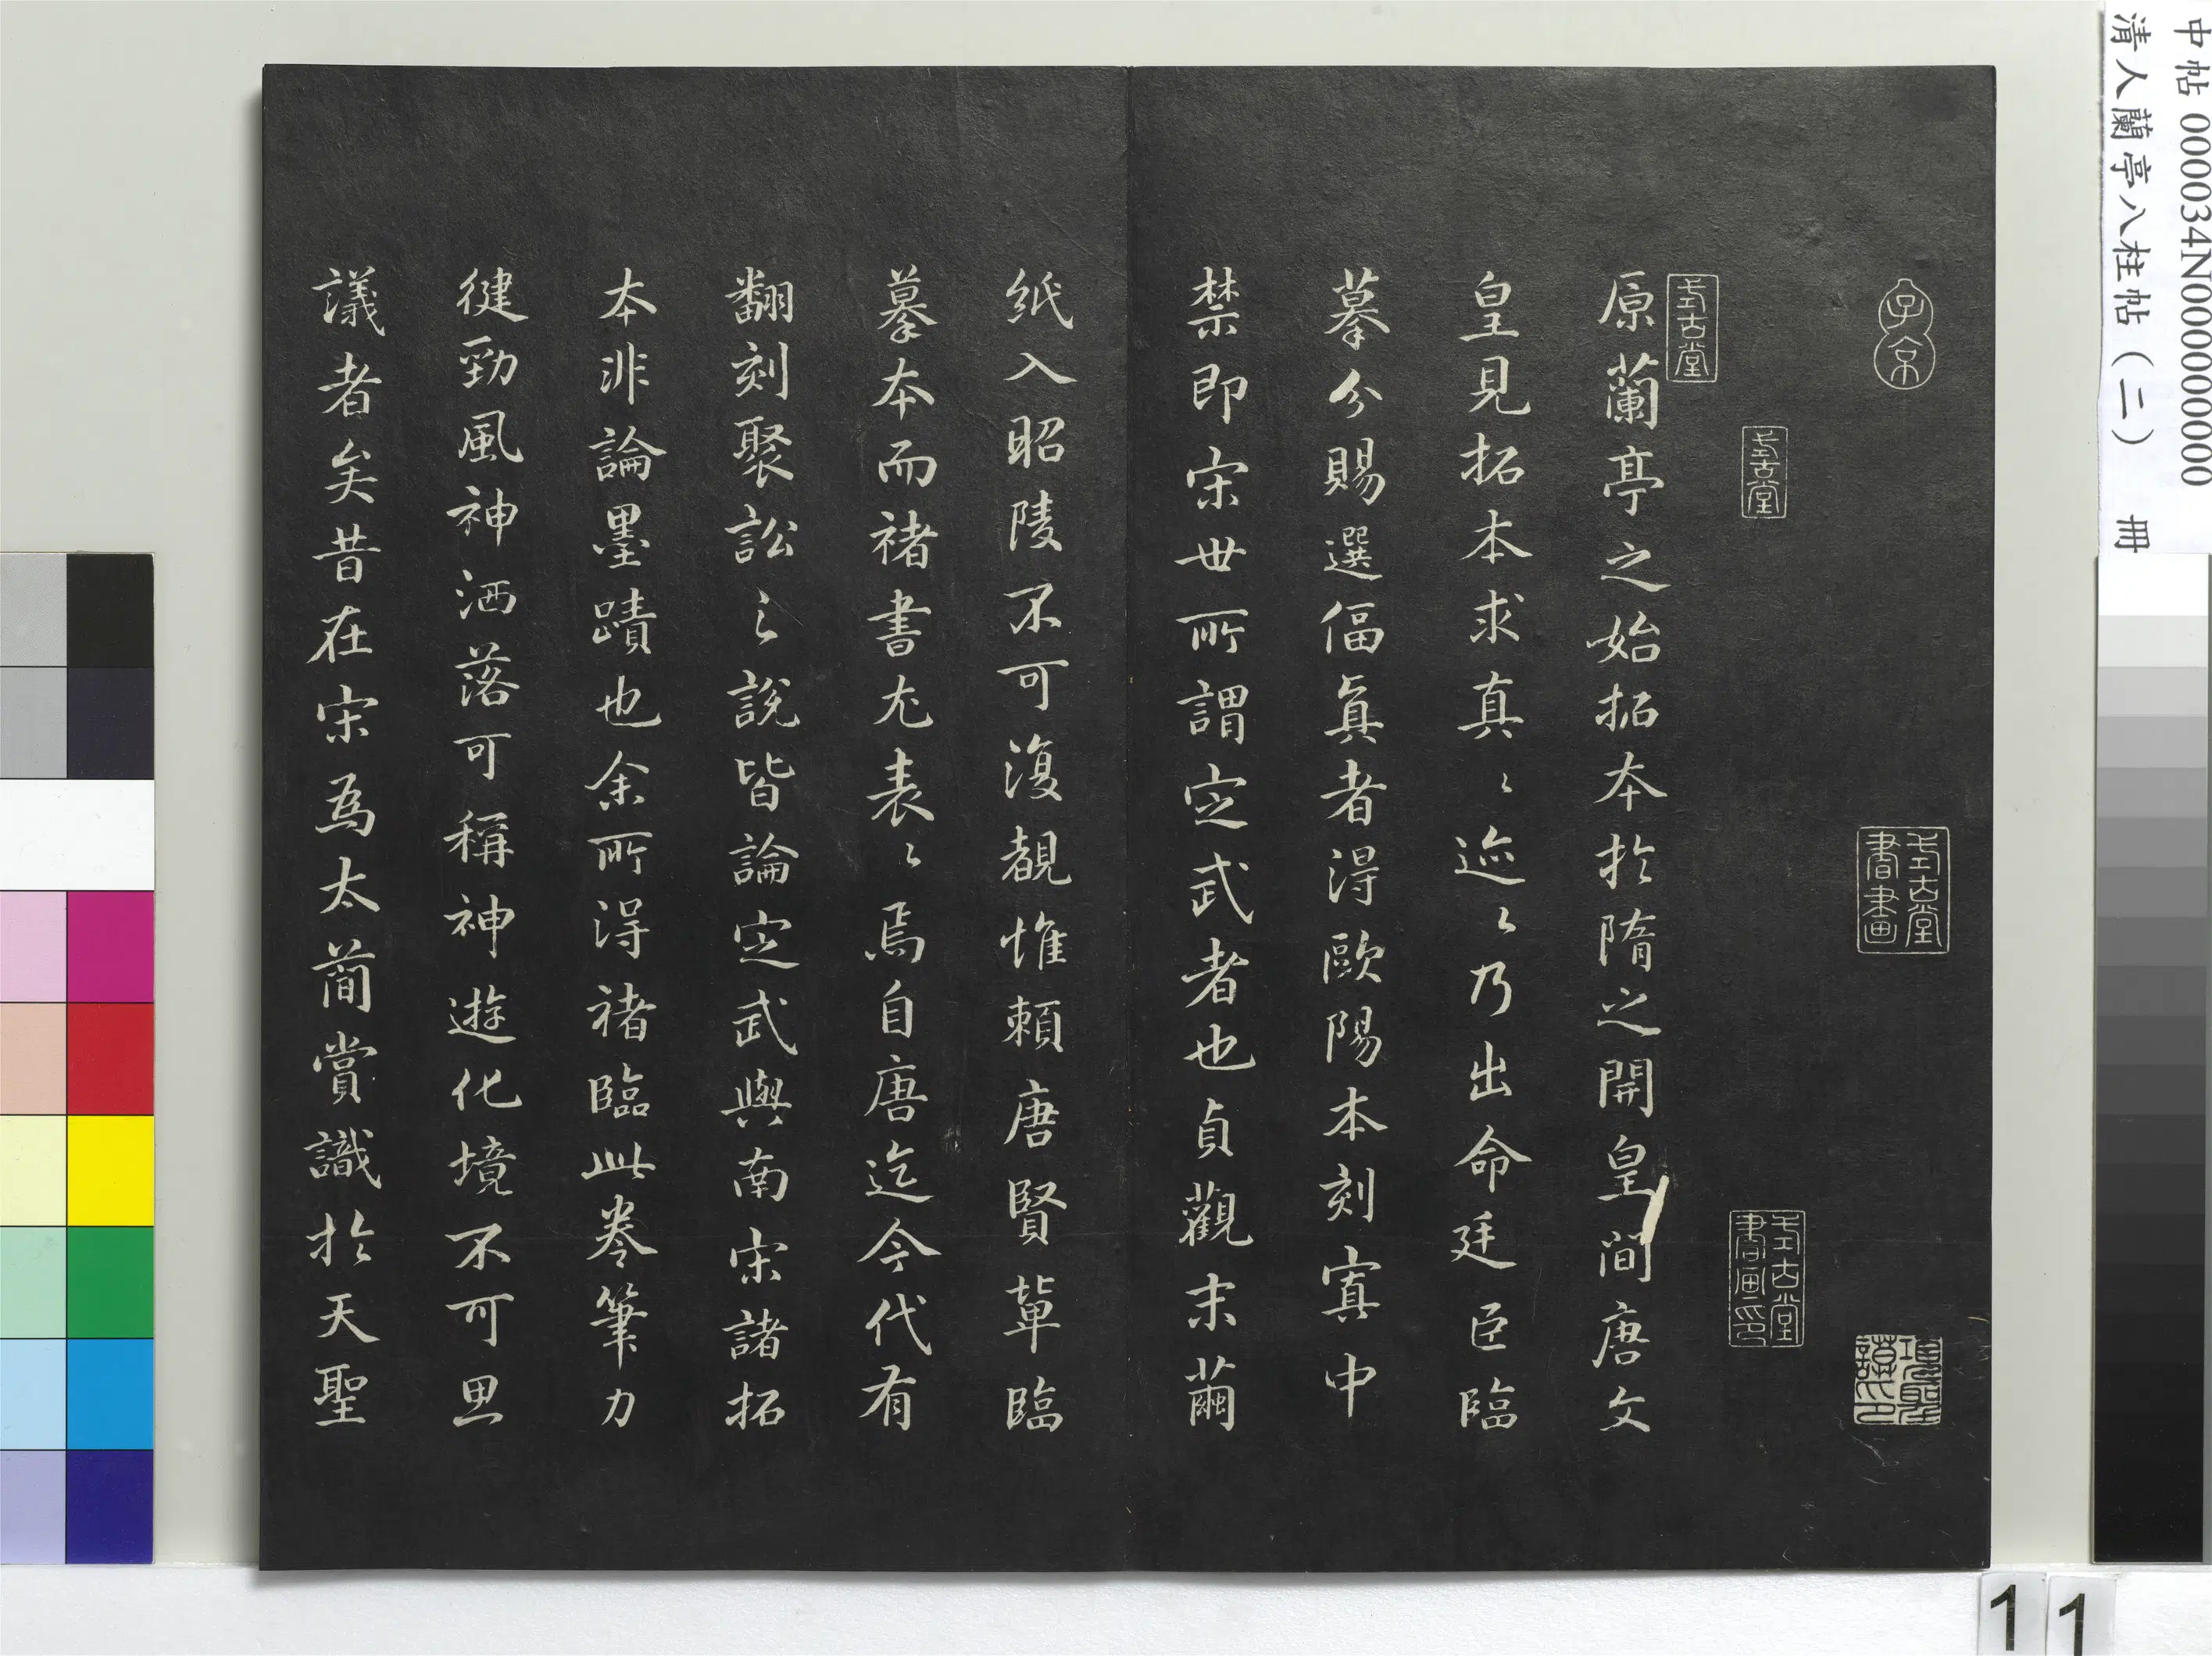 中帖 000034N000000000000
清人蘭亭八柱帖（二） 冊
子京
式古堂書畫
項聖謨印
式古堂
式古堂書画印
式古堂
原蘭亭之始拓本於隋之開皇間唐文
皇見拓本求真〻迹〻乃出命廷臣臨
摹分賜選偪真者得歐陽本刻寘中
禁即宋世所謂定武者也貞觀末繭
紙入昭陵不可復覩惟賴唐賢輩臨
摹本而褚書尤表〻焉自唐迄今代有
翻刻聚訟之說皆論定武與南宋諸拓
本非論墨蹟也余所得褚臨此卷筆力
健勁風神洒落可稱神遊化境不可思
議者矣昔在宋為太簡賞識於天聖
11